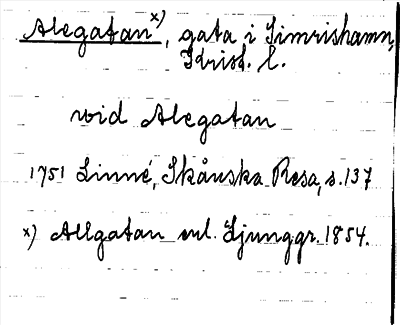 Alegatan x), gata i Simrishamn,
Krist. l.
vid Alegatan
1751 Linné, Skånska Resa, s. 137
x) Allgatan enl. Ljunggr. 1854.